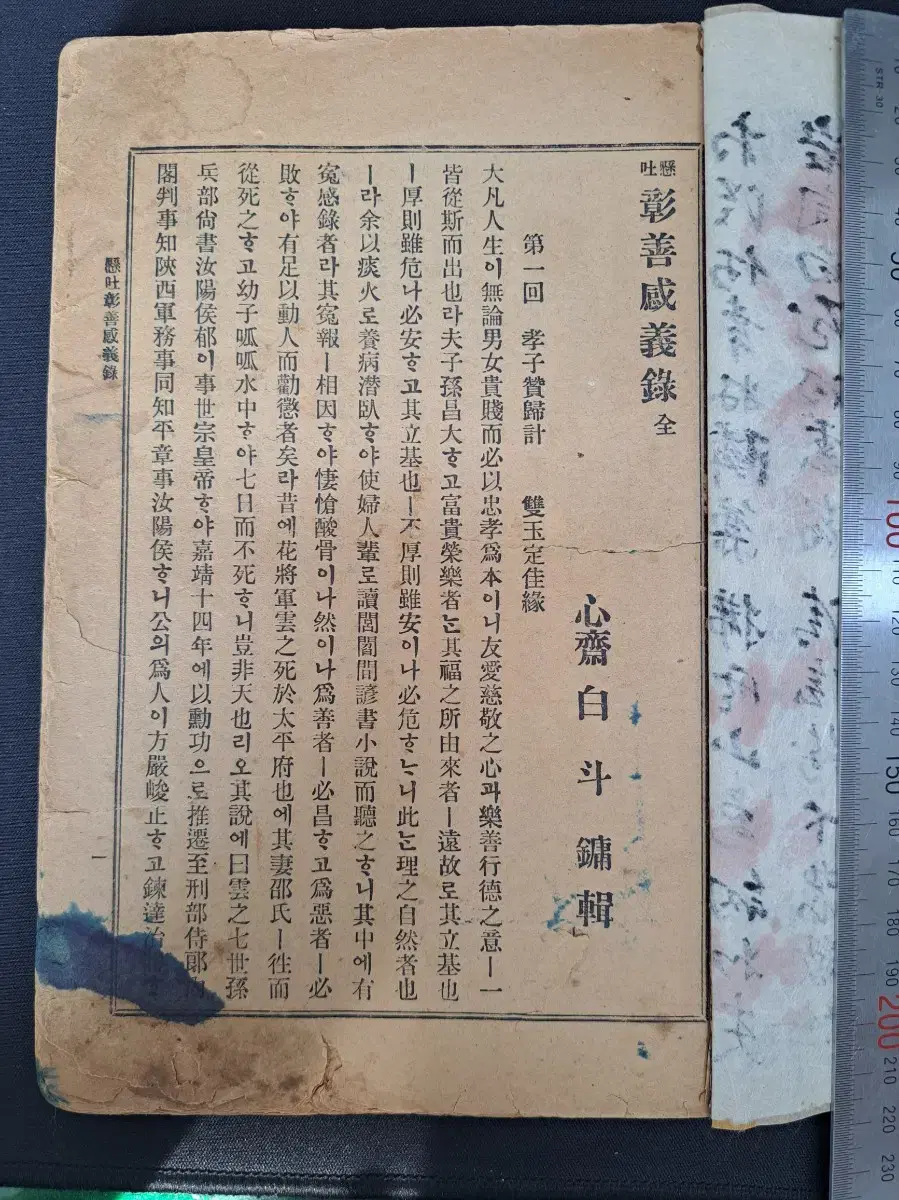 懸吐 彰善感義錄 全
心齋 白斗鏞 輯
第一回 孝子贊歸計 雙玉定佳緣
大凡人生이無論男女貴賤而必以忠孝爲本이니友愛慈敬之心과樂善行德之意ㅣ一
皆從斯而出也라夫子孫昌大ᄒᆞ고富貴榮樂者ᄂᆞᆫ其福之所由來者ㅣ遠故로其立基也
ㅣ厚則雖危나必安ᄒᆞ고其立基也ㅣ不厚則雖安이나必危ᄒᆞᄂᆞ니此ᄂᆞᆫ理之自然者也
ㅣ라余以痰火로養病潛臥ᄒᆞ야使婦人輩로讀閭閻間諺書小說而聽之ᄒᆞ니其中에有
寃感錄者라其寃報ㅣ相因ᄒᆞ야悽愴酸骨이나然이나爲善者ㅣ必昌ᄒᆞ고爲惡者ㅣ必
敗ᄒᆞ야有足以動人而勸懲者矣라昔에花將軍雲之死於太平府也에其妻邵氏ㅣ徃而
從死之ᄒᆞ고幼子呱呱水中ᄒᆞ야七日而不死ᄒᆞ니豈非天也리오其說에曰雲之七世孫
兵部尙書汝陽侯郁이事世宗皇帝ᄒᆞ야嘉靖十四年에以勳功으로推遷至刑部侍郞內
閣判事知陝西軍務事同知平章事汝陽侯ᄒᆞ니公의爲人이方嚴峻正ᄒᆞ고鍊達治
懸吐彰善感義錄
一
STR-30
100
150
200